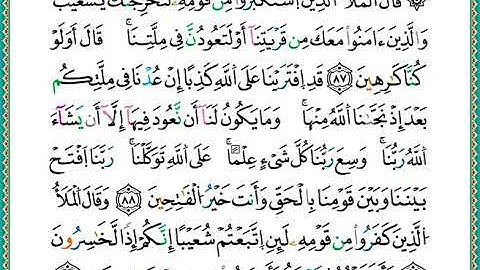 قَالَ الْمَلَأُ الَّذِينَ اَسْتَكْبَرُوا مِن قَوْمِهِ لَنُخْرِجَنَّكَ يَٰشُعَيْبُ
وَالَّذِينَ ءَامَنُوا مَعَكَ مِن قَرْيَتِنَا أَوْ لَتَعُودُنَّ فِي مِلَّتِنَا قَالَ أَوَلَوْ
كُنَّا كَٰرِهِينَ ٨٧ قَدِ اِفْتَرَيْنَا عَلَى اللَّهِ كَذِبًا إِنْ عُدْنَا فِي مِلَّتِكُم
بَعْدَ إِذْ نَجَّىٰنَا اللَّهُ مِنْهَا وَمَا يَكُونُ لَنَا أَن نَّعُودَ فِيهَا إِلَّا أَن يَشَاءَ
اللَّهُ رَبُّنَا وَسِعَ رَبُّنَا كُلَّ شَيْءٍ عِلْمًا عَلَى اللَّهِ تَوَكَّلْنَا رَبَّنَا اِفْتَحْ
بَيْنَنَا وَبَيْنَ قَوْمِنَا بِالْحَقِّ وَأَنتَ خَيْرُ الْفَٰتِحِينَ ٨٨ وَقَالَ الْمَلَأُ
الَّذِينَ كَفَرُوا مِن قَوْمِهِ لَئِنِ اِتَّبَعْتُمْ شُعَيْبًا إِنَّكُمْ إِذًا لَّخَٰسِرُونَ